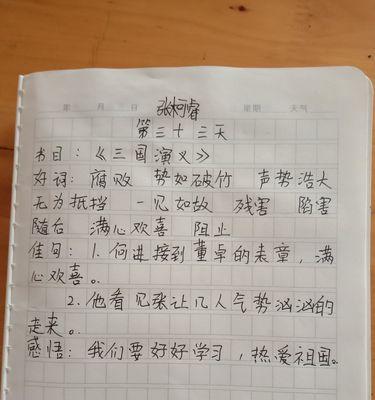 张柯睿
年 月 日 星期 天气
第三十三天
书目：《三国演义》
好词：腐败 势如破竹 声势浩大
无为抵挡 一见如故 残害 陷害
随后 满心欢喜 阻止
佳句：1.何进接到董卓的表章，满
心欢喜。
2.他看见张让几人气势汹汹的
走来。
感悟：我们要好好学习，热爱祖国。